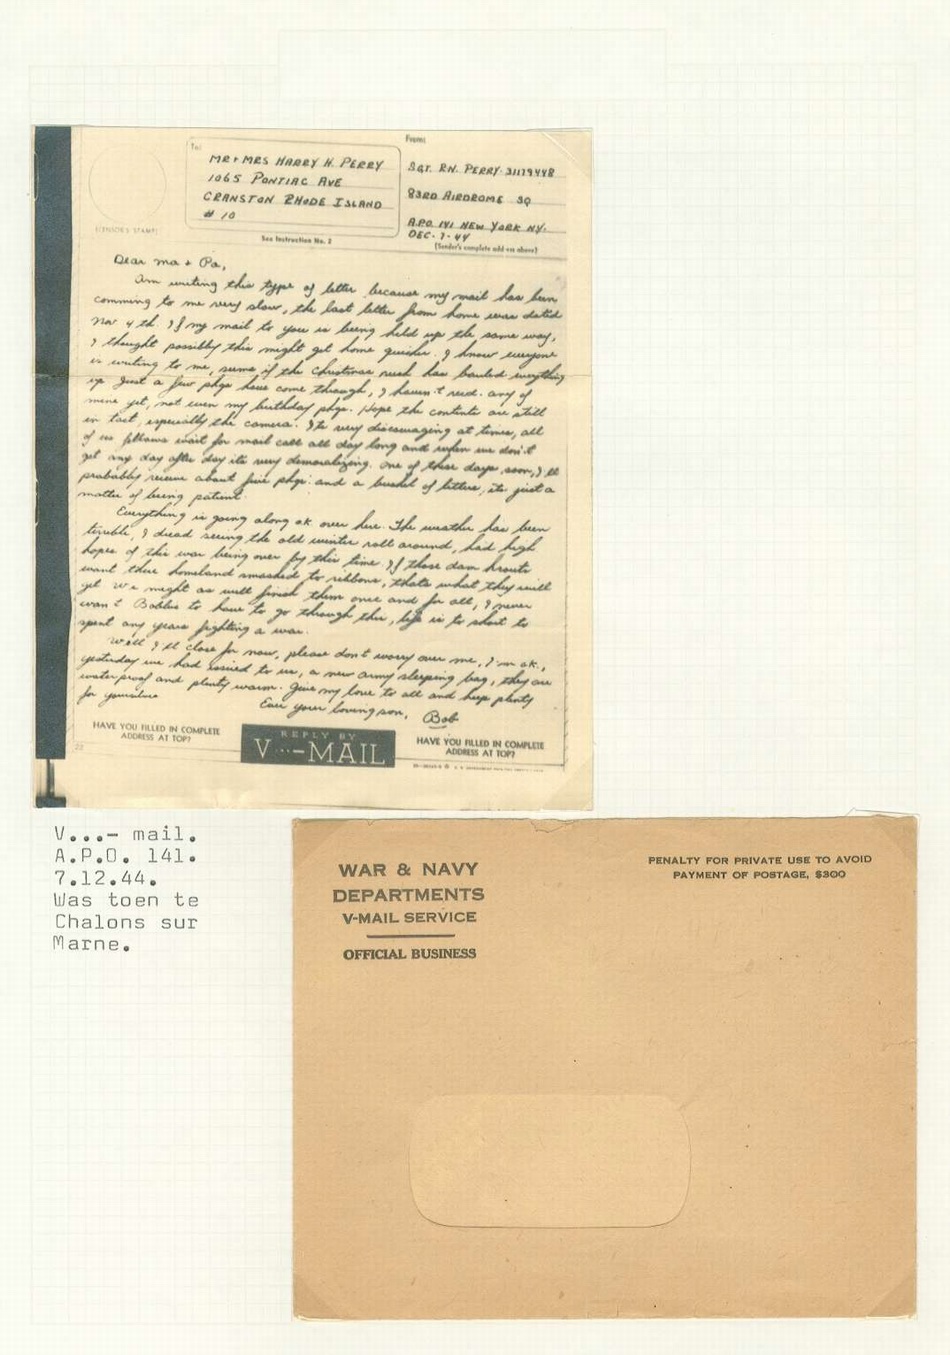 To:
MR + MRS HARRY H. PERRY
1065 PONTIAC AVE
CRANSTON RHODE ISLAND
# 10
(CENSOR'S STAMP)
See Instruction No. 2
From:
SGT. R.N. PERRY 31179448
83RD AIRDROME SQ
A.P.O. 141 NEW YORK N.Y.
DEC. 7-44
(Sender's complete address above)
Dear Ma + Pa,
Am writing this type of letter because my mail has been
comming to me very slow, the last letter from home was dated
Nov 4th. If my mail to you is being held up the same way,
I thought possibly this might get home quicker. I know everyone
is writing to me, seems if the Christmas rush has bauled everything
up Just a few pkgs have come through, I haven't recd. any of
mine yet, not even my birthday pkgs. Hope the contents are still
in tact, especially the camera. Its very discouraging at times, all
of us fellows wait for mail call all day long and when we don't
get any day after day its very demoralizing. One of these days, soon, I'll
probably receive about five pkgs. and a bushel of letters, its just a
matter of being patient.
Everything is going along ok over here. The weather has been
terrible, I dread seeing the old winter roll around, had high
hopes of this war being over by this time If those dam krauts
want there homeland smashed to ribbons, thats what they will
get We might as well finish them once and for all, I never
want Bobbie to have to go through this, life is to short to
spent any years fighting a war.
Well I'll close for now, please don't worry over me, I'm ok.,
yesterday we had issued to us, a new army sleeping bag, they are
waterproof and plenty warm. Give my love to all and keep plenty
for yourselves
Ever your loving son,
Bob
HAVE YOU FILLED IN COMPLETE
ADDRESS AT TOP?
REPLY BY
V...-MAIL
HAVE YOU FILLED IN COMPLETE
ADDRESS AT TOP?
V...- mail.
A.P.O. 141.
7.12.44.
Was toen te
Chalons sur
Marne.
WAR & NAVY
DEPARTMENTS
V-MAIL SERVICE
OFFICIAL BUSINESS
PENALTY FOR PRIVATE USE TO AVOID
PAYMENT OF POSTAGE, $300